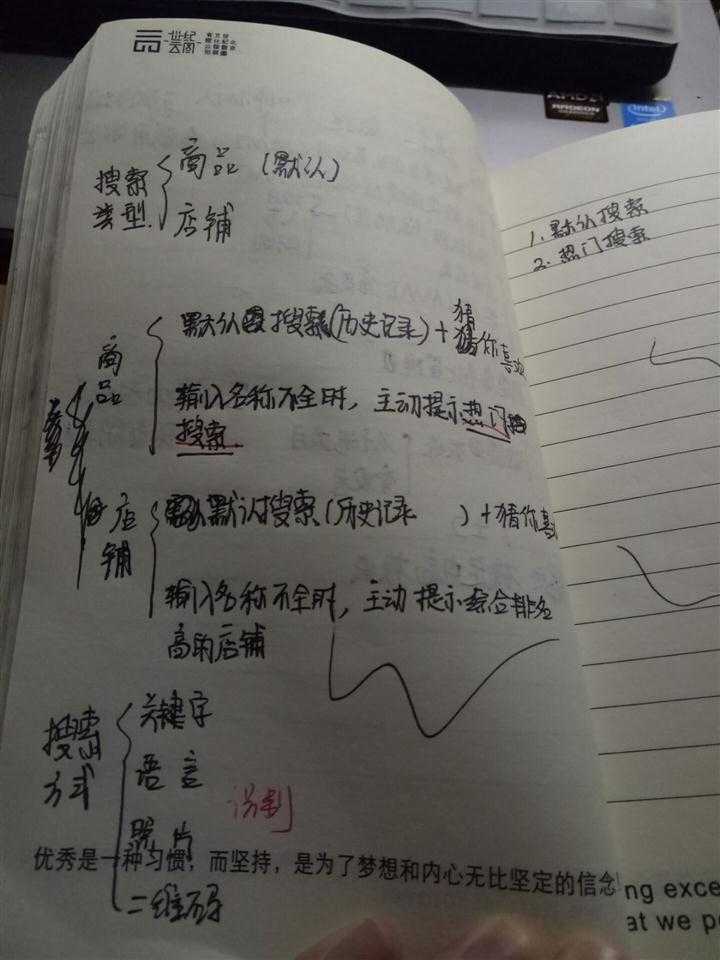 世纪
云阁
搜索
类型
商品 (默认)
店铺
1. 默认搜索
2. 热门搜索
商品
默认搜索(历史记录)+猜你喜欢
输入名称不全时，主动提示热门
搜索.
店铺
默认搜索(历史记录 )+猜你喜
输入名称不全时，主动提示综合排名
高的店铺
搜索
方式
关键字
语言
照片
二维码
优秀是一种习惯，而坚持，是为了梦想和内心无比坚定的信念
ng exce
at we p
AMD
RADEON
GRAPHICS
intel